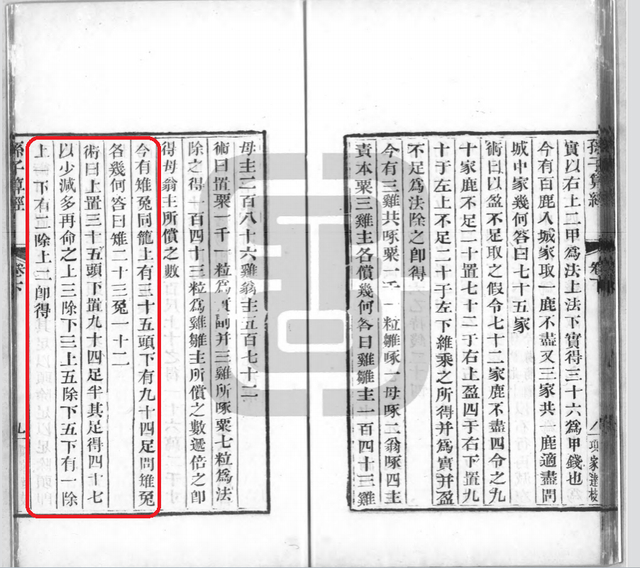 孫子算經 卷下 八 項家達校
實以右上二甲爲法上法下實得三十六爲甲錢也
今有百鹿入城家取一鹿不盡又三家共一鹿適盡問
城中家幾何答曰七十五家
術曰以盈不足取之假令七十二家鹿不盡四令之九
十家鹿不足二十置七十二于右上盈四于右下置九
十于左上不足二十于左下維乘之所得并爲實并盈
不足爲法除之卽得
今有三雞共啄粟一千一粒雛啄一母啄二翁啄四主
責本粟三雞主各償幾何答曰雞雛主一百四十三雞
母主二百八十六雞翁主五百七十二
術曰置粟一千一粒爲實副并三雞所啄粟七粒爲法
除之得一百四十三粒爲雞雛主所償之數遞倍之卽
得母翁主所償之數
今有雉兔同籠上有三十五頭下有九十四足問雉兔
各幾何答曰雉二十三兔一十二
術曰上置三十五頭下置九十四足半其足得四十七
以少減多再命之上三除下三上五除下五下有一除
上一下有二除上二卽得
孫子算經 卷下 九